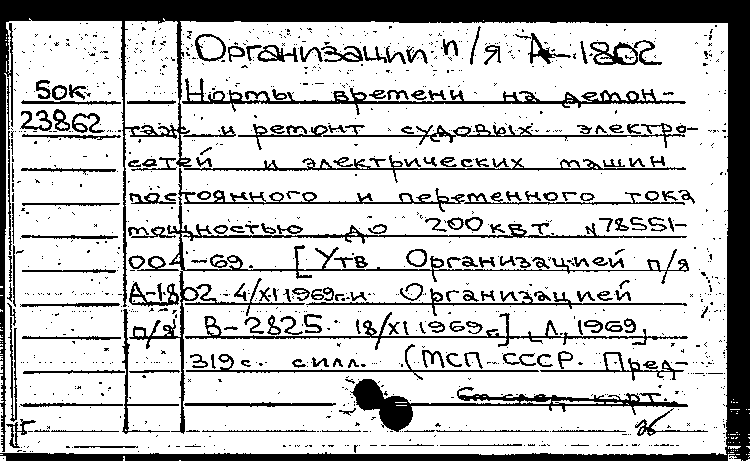 Организации п/я А-1802
50к.
Нормы времени на демон-
23862
таж и ремонт судовых электро-
сетей и электрических машин
постоянного и переменного тока
мощностью до 200 квт. N78551-
004-69. [Утв. Организацией п/я
А-1802 4/XI 1969г. и Организацией
п/я В-2825. 18/XI 1969г.] [Л, 1969].
319с. с илл. (МСП СССР. Пред-
См след. карт.